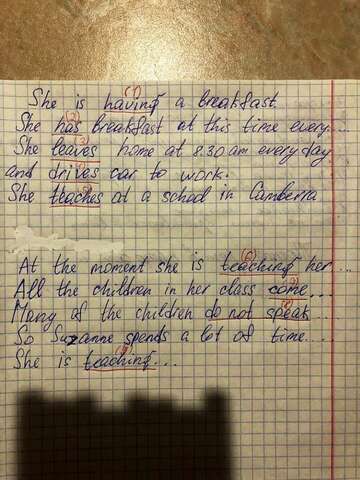 She is having (1) a breakfast
She has (2) breakfast at this time every....
She leaves (3) home at 8 30 am every day
and drives car to work.
She teaches at a school in Camberra
At the moment she is teaching (6) her...
All the children in her class come...
Many of the children do not speak....
So Suzanne spends a lot of time....
She is teaching...